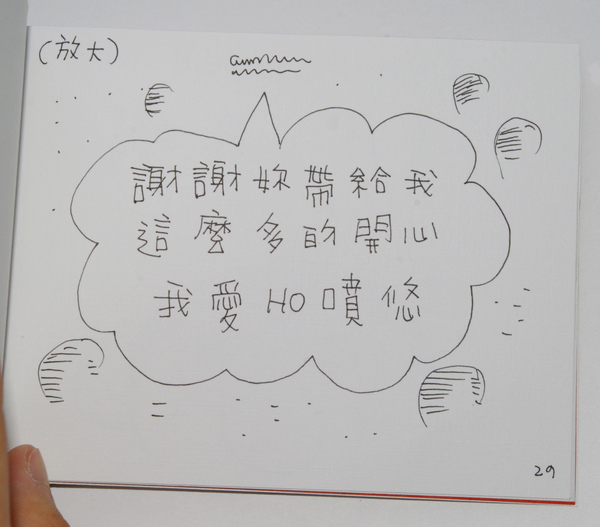 (放大)
謝謝妳帶給我
這麼多的開心
我愛HO噴悠
29